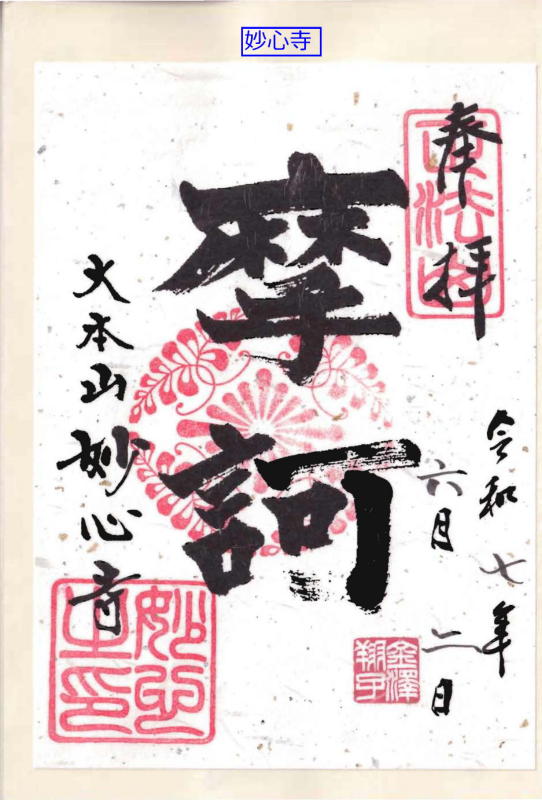 妙心寺
奉拝
令和七年
六月二日
摩訶
大本山妙心寺
金澤
翔子